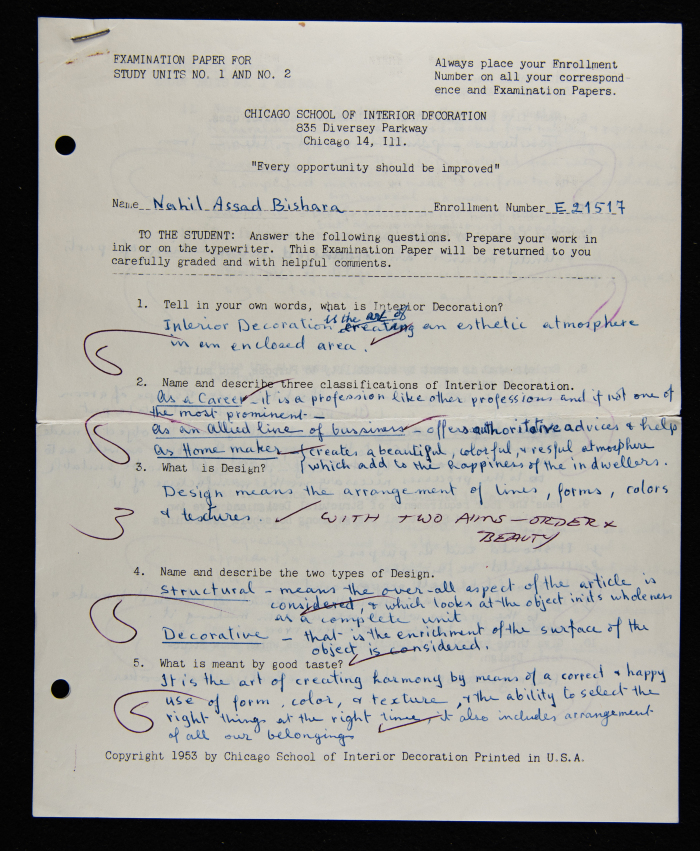 EXAMINATION PAPER FOR
STUDY UNITS NO. 1 AND NO. 2
Always place your Enrollment
Number on all your correspond-
ence and Examination Papers.
CHICAGO SCHOOL OF INTERIOR DECORATION
835 Diversey Parkway
Chicago 14, Ill.
"Every opportunity should be improved"
Name Nahil Assad Bishara Enrollment Number E 21517
TO THE STUDENT: Answer the following questions. Prepare your work in
ink or on the typewriter. This Examination Paper will be returned to you
carefully graded and with helpful comments.
1. Tell in your own words, what is Interior Decoration?
is the art of
Interior Decoration creating an esthetic atmosphere
in an enclosed area.
5
2. Name and describe three classifications of Interior Decoration.
As a Career - it is a profession like other professions and if not one of
the most prominent -
As an Allied line of bussiness - offers authoritative advices & help
As Home maker - creates a beautiful, colorful, & resful atmosphere
which add to the happiness of the in dwellers.
5
3. What is Design?
Design means the arrangement of lines, forms, colors
& textures. WITH TWO AIMS - ORDER &
BEAUTY
3
4. Name and describe the two types of Design.
Structural - means the over-all aspect of the article is
considered, & which looks at the object in its wholeness
as a complete unit
Decorative - that is the enrichment of the surface of the
object is considered.
5
5. What is meant by good taste?
It is the art of creating harmony by means of a correct & happy
use of form, color, & texture, & the ability to select the
right things at the right time, it also includes arrangement
of all our belongings
5
Copyright 1953 by Chicago School of Interior Decoration Printed in U.S.A.